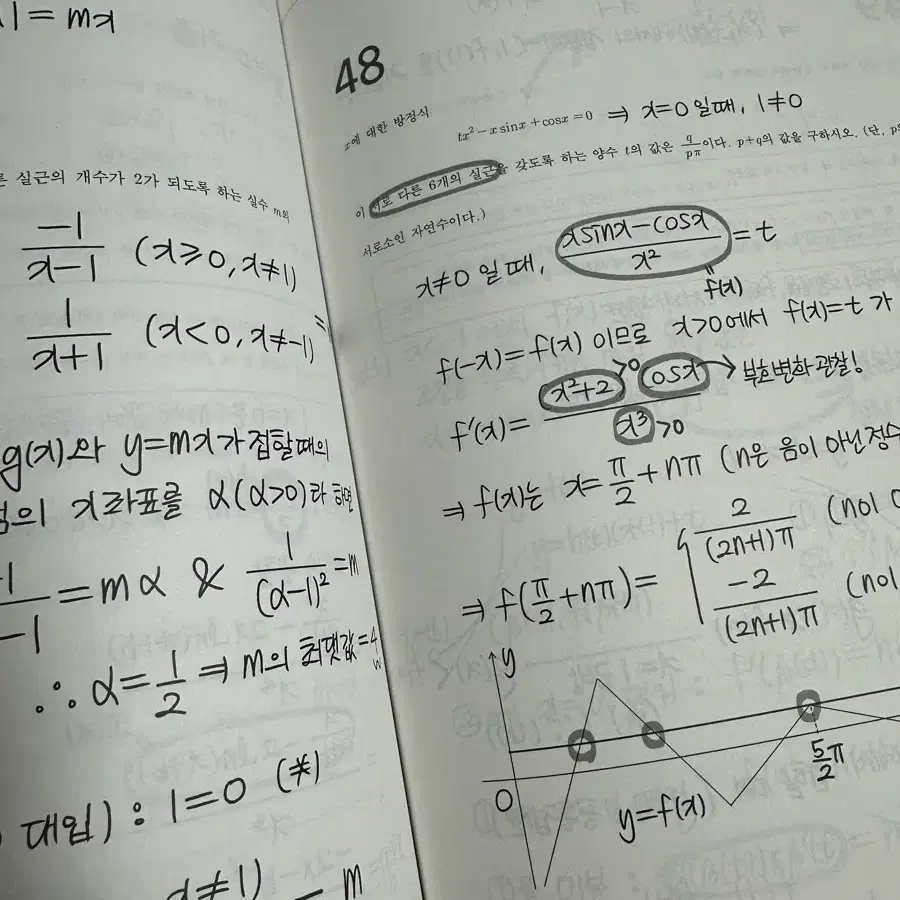 |=mx
른 실근의 개수가 2가 되도록 하는 실수 m의
-1/(x-1) (x≥0, x≠1)
1/(x+1) (x<0, x≠-1)
g(x)와 y=mx가 접할때의
점의 x좌표를 α(α>0)라 하면
-1/-1=mα & 1/(α-1)²=m
∴ α=1/2 ⇒ m의 최댓값=4
대입) : 1=0 (*)
x≠1) m
48
x에 대한 방정식
tx²-x sinx+cosx=0 ⇒ x=0일때, 1≠0
이 서로 다른 6개의 실근을 갖도록 하는 양수 t의 값은 q/pπ이다. p+q의 값을 구하시오. (단, p와
서로소인 자연수이다.)
x≠0일때, (xsinx-cosx)/x²=t
f(x)
f(-x)=f(x)이므로 x>0에서 f(x)=t가
f'(x)=(x²+2)cosx/x³ >0 >0 → 부호변화 관찰!
⇒ f(x)는 x=π/2+nπ (n은 음이 아닌 정수
⇒ f(π/2+nπ)={ 2/((2n+1)π) (n이
-2/((2n+1)π) (n이
y
5/2π
0
y=f(x)